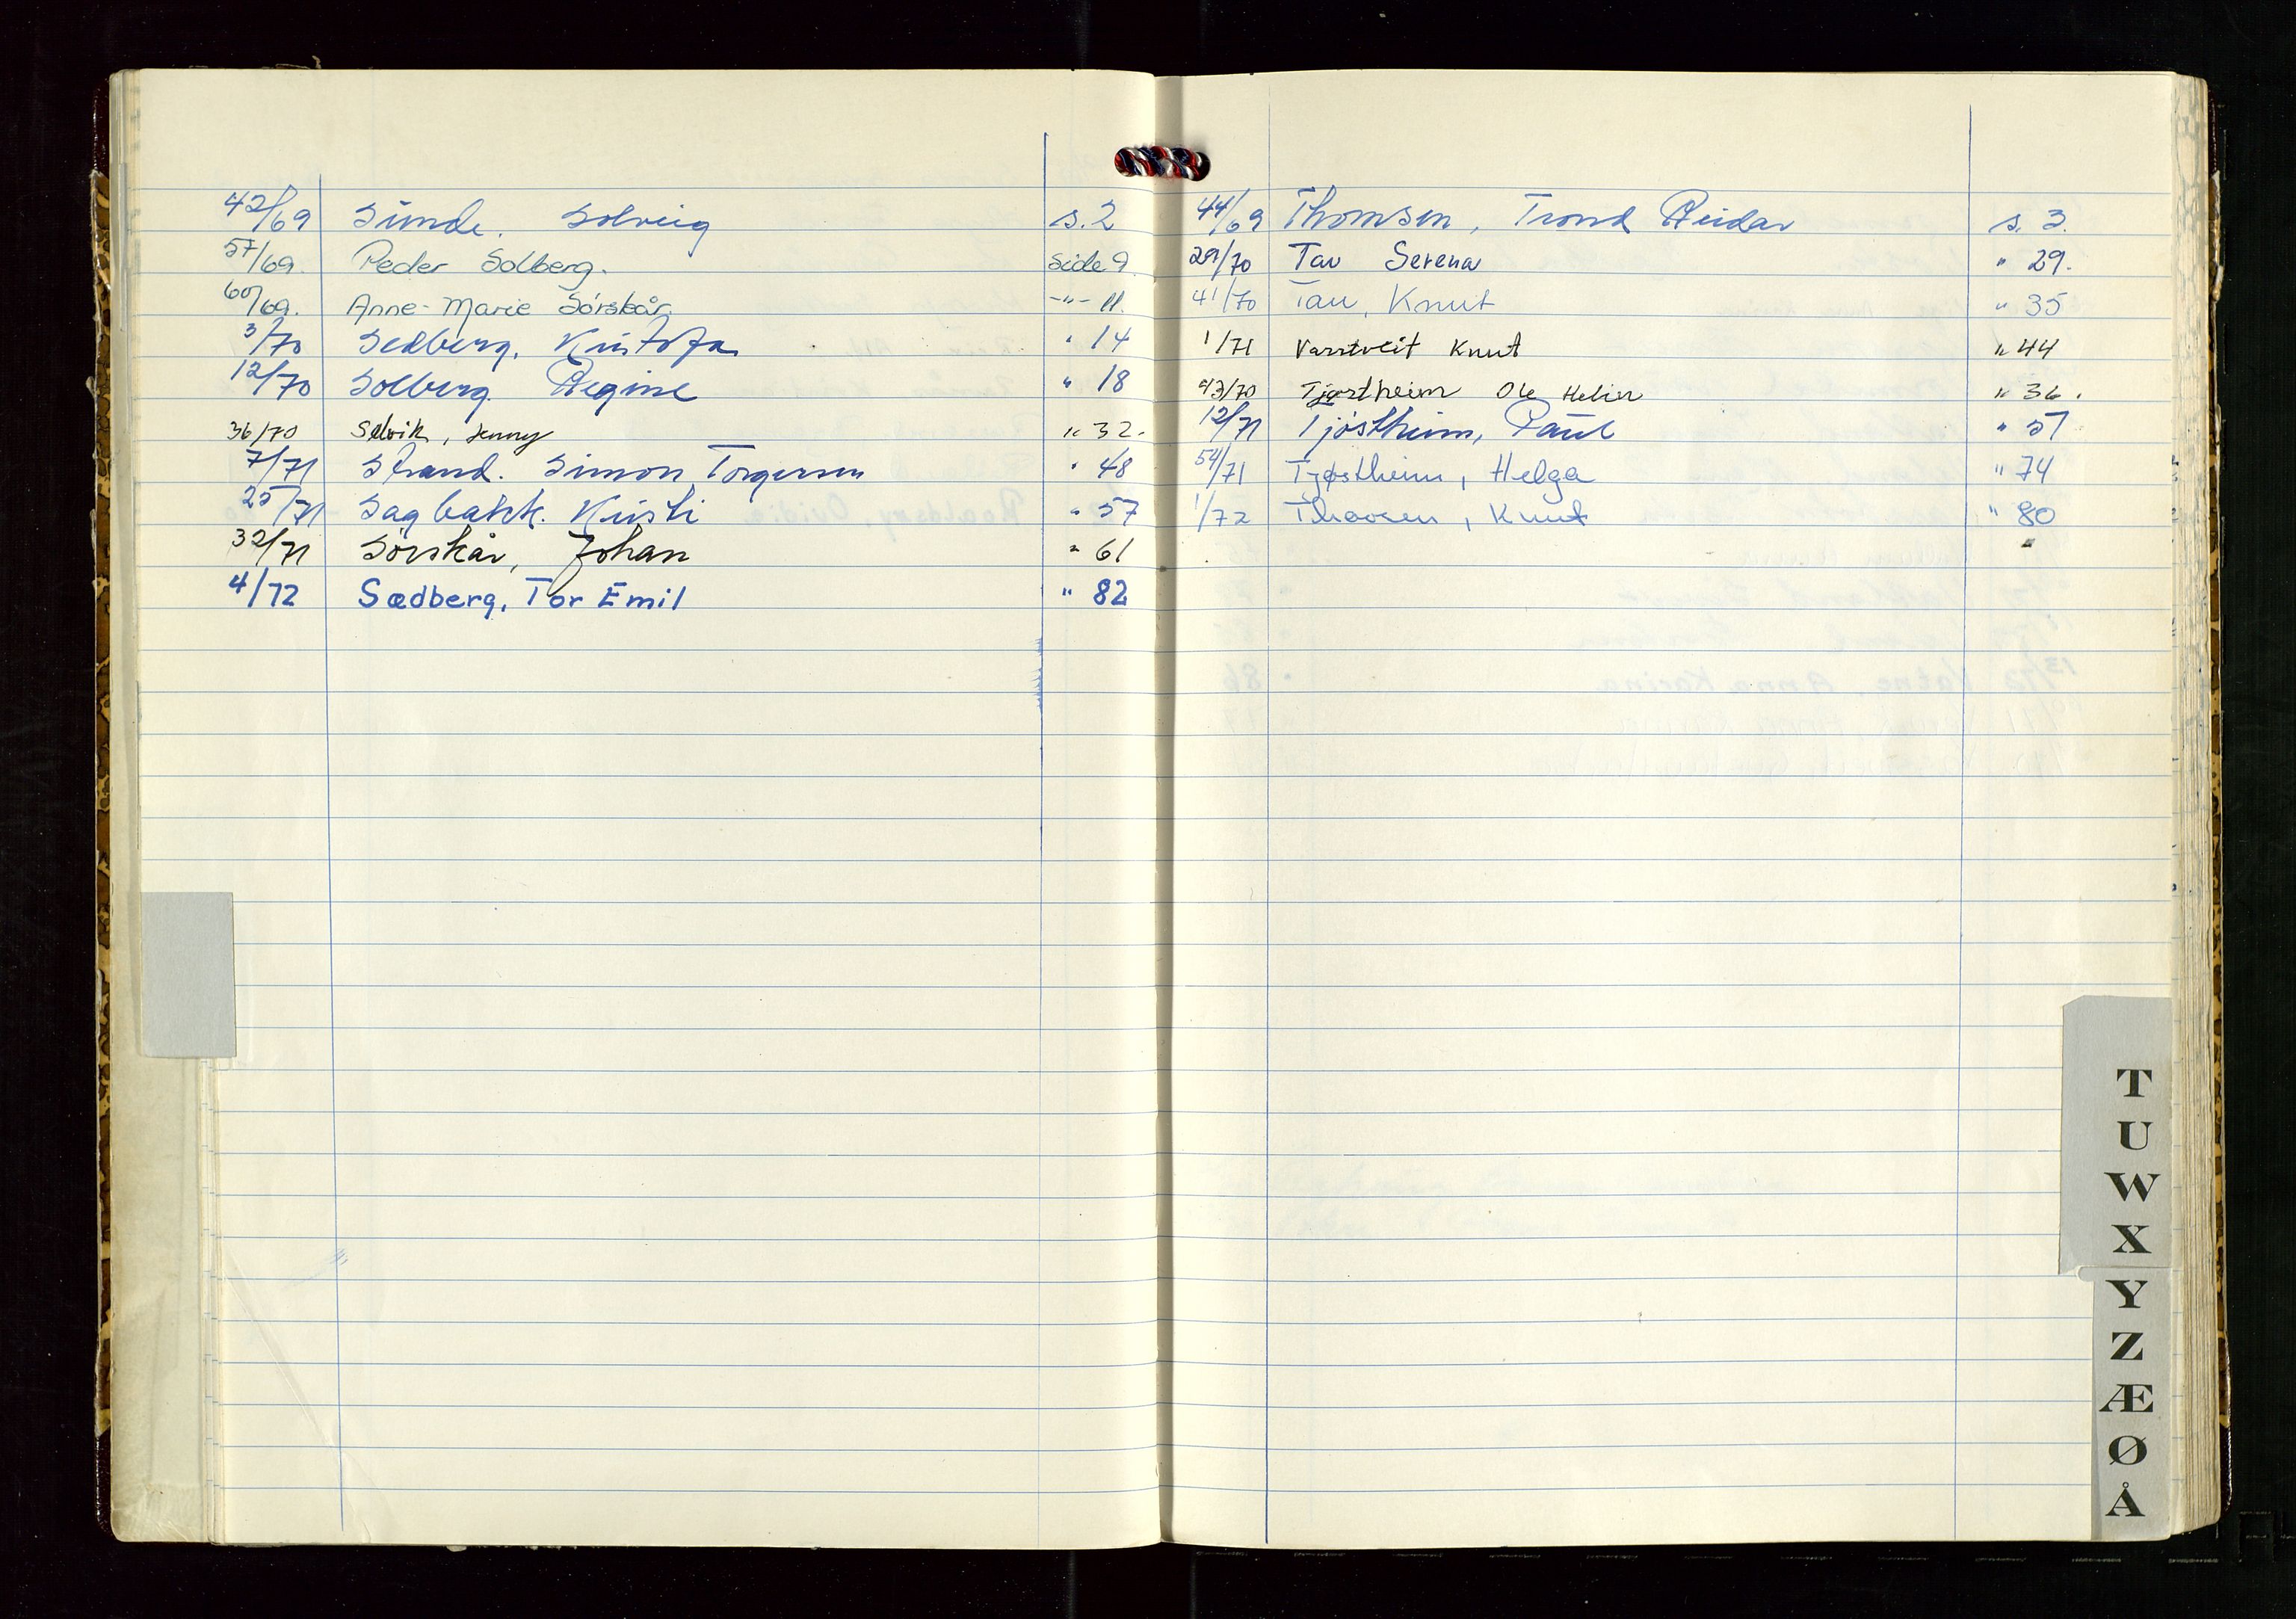 42/69 Sunde. Solveig s. 2
57/69. Peder Solberg. Side 9.
60/69. Anne-Marie Sörskår. -"- 11.
3/70 Sedberg, Kristofa " 14
12/70 Solberg Regine " 18
36/70 Selvik, Jenny " 32.
7/71 Strand. Simon Torgersen " 48
25/71 Sagbakk. Kirsti " 57
32/71 Sörskår, Johan " 61
4/72 Sædberg, Tor Emil " 82
44/69 Thomsen, Trond Reidar s. 3.
29/70 Tau Serena " 29.
41/70 Tau, Knut " 35
1/71 Knut " 44
43/70 Tjøstheim Ole Helier " 36.
12/71 Tjöstheim, Paul " 51
54/71 Tjøstheim, Helga " 74
1/72 Thorsen, Knut " 80
"
T
U
W
X
Y
Z
Æ
Ø
Å